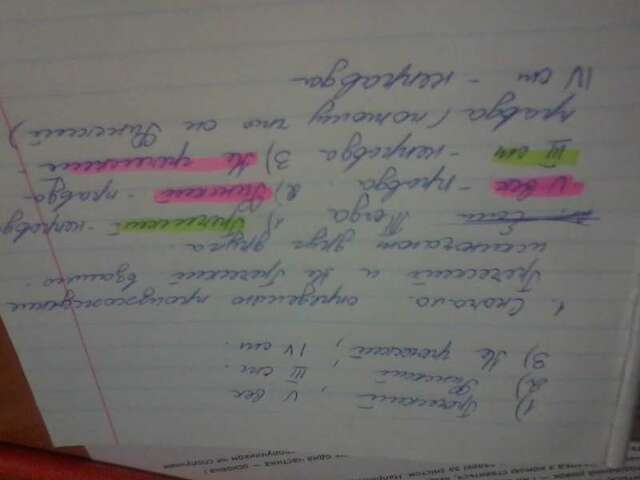 одна частина — основна і
сполучником чи сполучни
1) Греческий, V век
2) Финский, III ст.
3) Не греческий, IV ст.
1. Сначала определяю происхождение
Греческий и Не Греческий взаимо-
исключают друг друга.
Если Тогда 1) Греческий - неправд
V век - правда. 2) Финский - правда
III ст - неправда 3) Не греческий -
правда (потому что он Финский)
IV ст - неправда